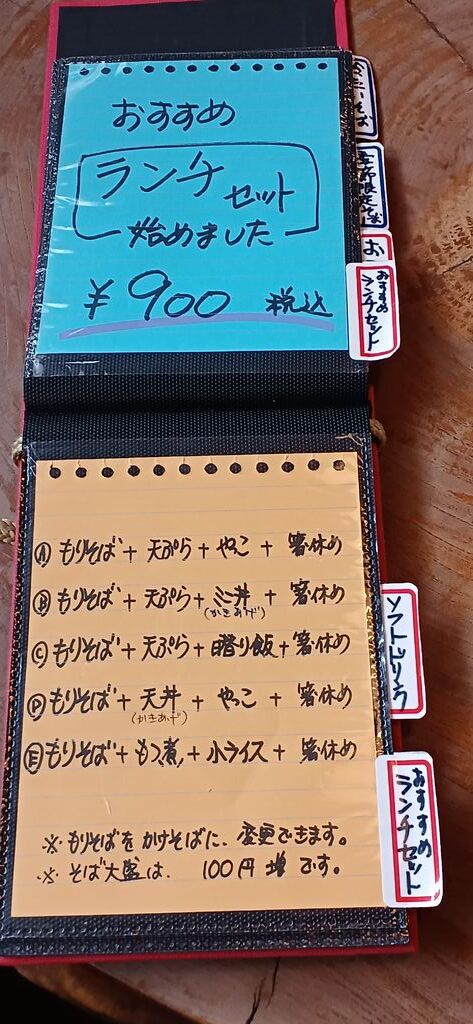 おすすめ
ランチセット
始めました
¥900 税込
おすすめ
ランチセット
Ⓐもりそば+天ぷら+やっこ+箸休め
Ⓑもりそば+天ぷら+ミニ丼+箸休め
(かきあげ)
Ⓒもりそば+天ぷら+晴り飯+箸休め
Ⓓもりそば+天丼+やっこ+箸休め
(かきあげ)
Ⓔもりそば+もつ煮+小ライス+箸休め
※もりそばをかけそばに、変更できます。
※そば大盛は、100円増です。
ソフトドリンク
おすすめ
ランチセット